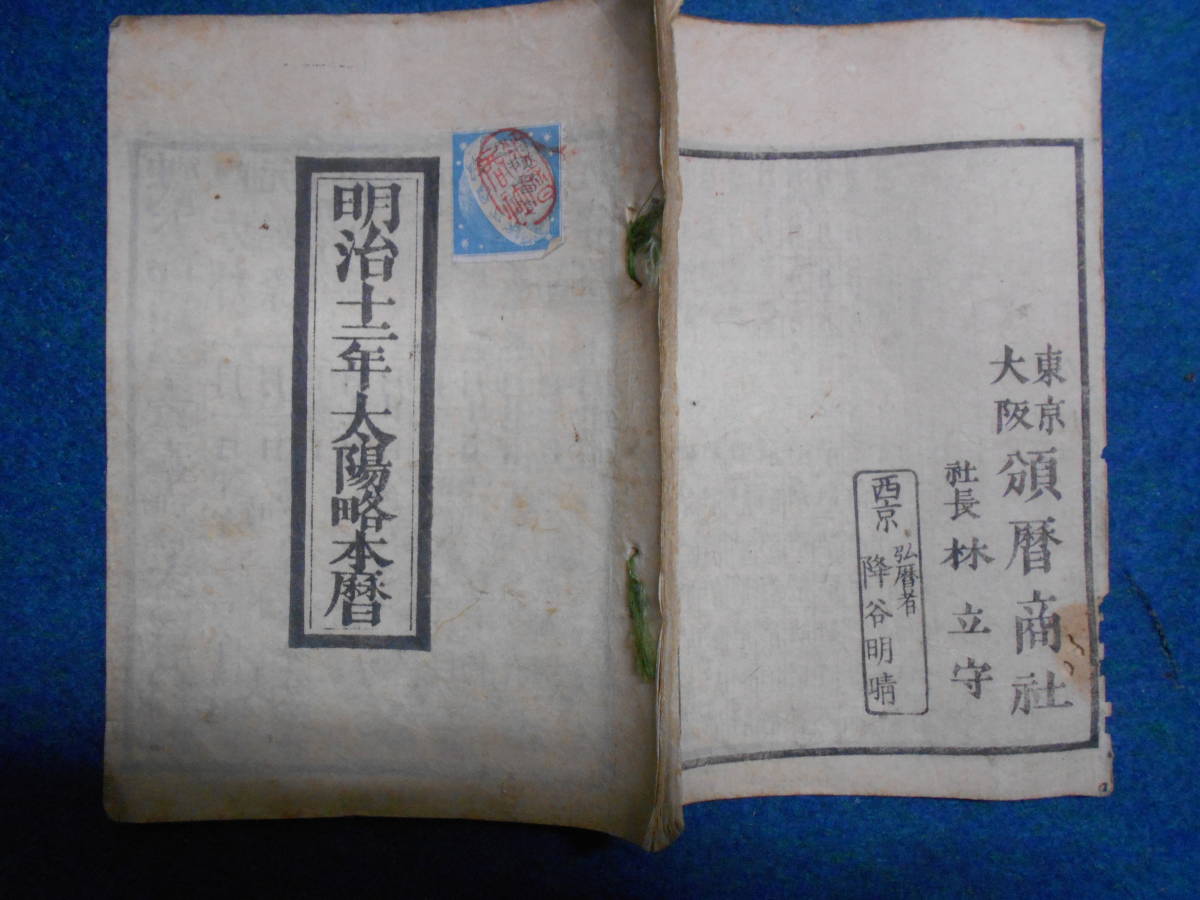 明治十二年太陽略本暦
東京
大阪
頒暦商社
社長 林立守
弘暦者
西京 降谷明晴